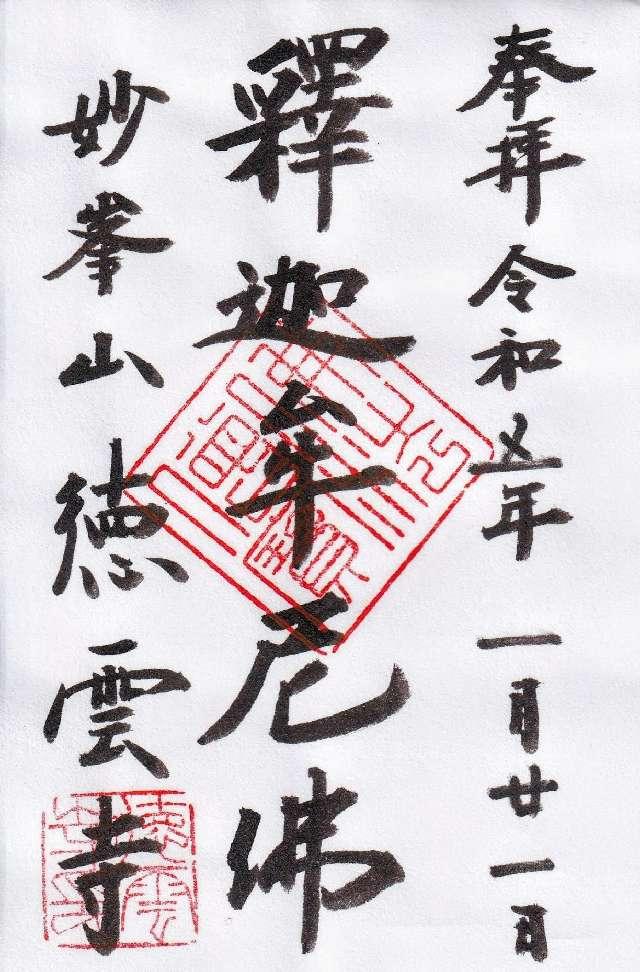 奉拝 令和五年 一月廿一日
釋迦牟尼佛
妙峯山 徳雲寺